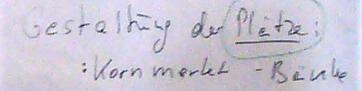 Gestaltung der Plätze:
: Kornmarkt - Bänke